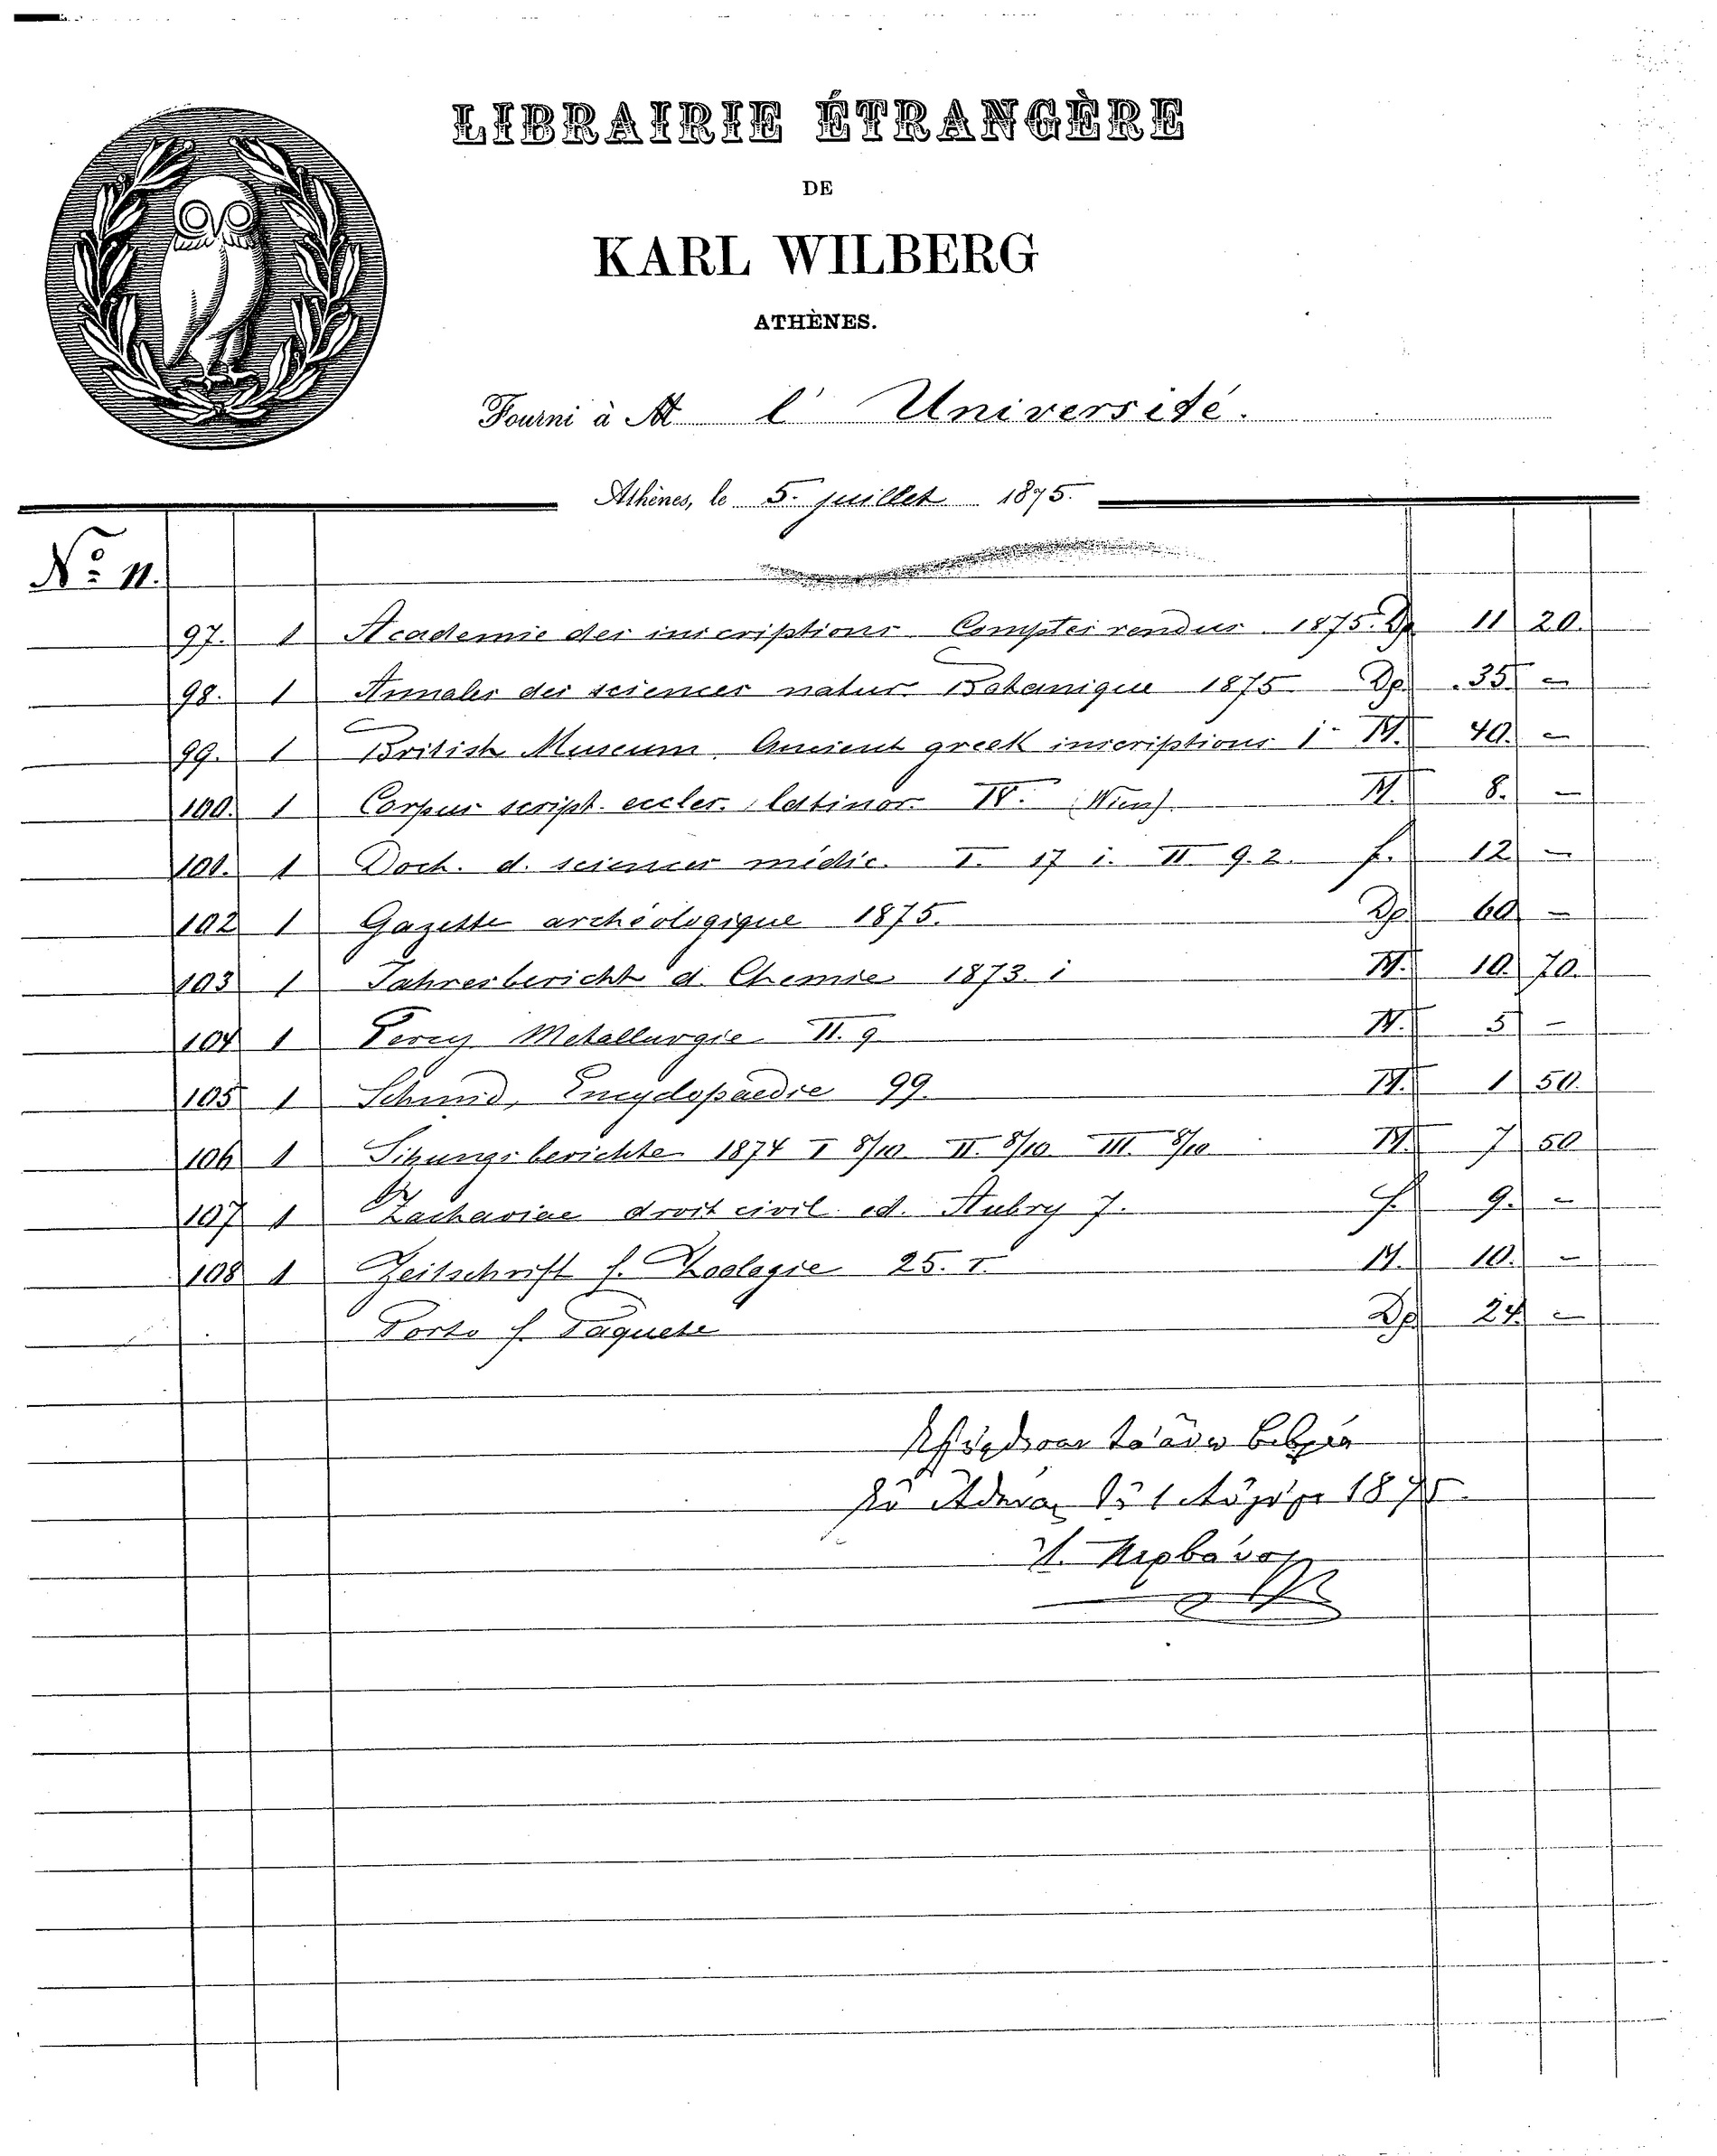 LIBRAIRIE ÉTRANGÈRE
DE
KARL WILBERG
ATHÈNES.
Fourni à M l' Université.
Athènes, le 5. juillet 1875.
No 11.
97. 1 Academie des inscriptions Comptes rendus 1875. Dp 11 20.
98. 1 Annales des sciences natur. Botanique 1875 Dp. 35 –
99. 1 British Museum. Ancient greek inscriptions i M. 40. –
100. 1 Corpus script. eccles. latinor. IV. (Wien) M. 8. –
101. 1 d. sciences médic. I. 17 i. II 9.2. f. 12 –
102 1 Gazette archéologique 1875. Dp 60 –
103 1 Jahresbericht d. Chemie 1873. i M. 10. 70.
104 1 Percy Metallurgie II. 9 M. 5 –
105 1 Schmid, Encyclopaedie 99. M. 1 50.
106 1 Sitzungsberichte 1874 I 8/10 II. 8/10 III. 8/10 M. 7 50
107 1 Zachariae droit civil ed. Aubry 7. f. 9. –
108 1 Zeitschrift f. Zoologie 25. I. M. 10. –
Porto f. Paquete Dp 24. –
τὰ ἄνω βιβλία
1 1875.